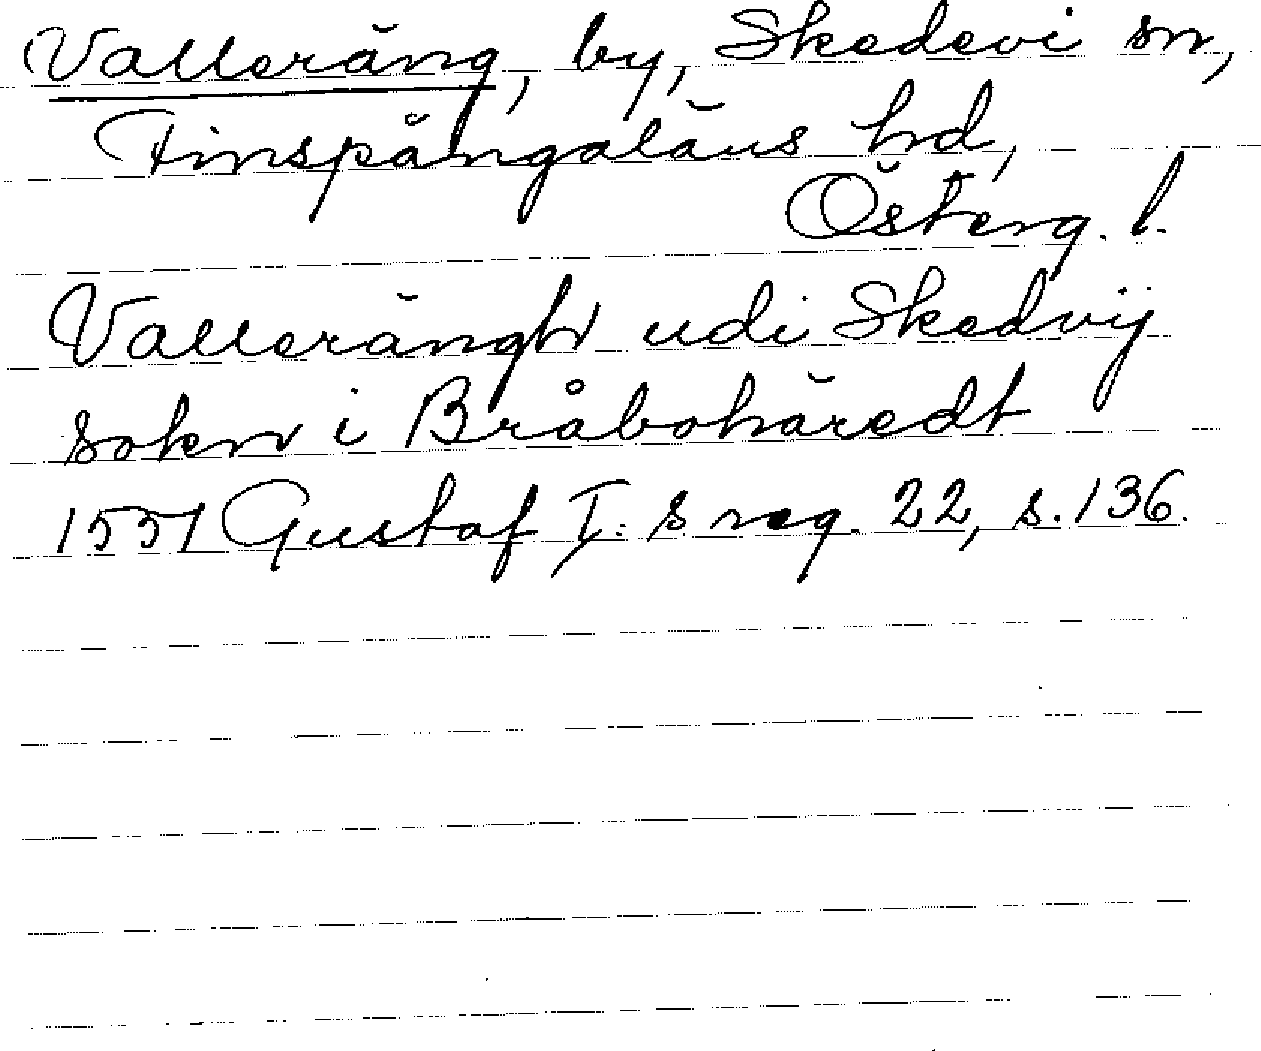 Valleräng, by, Skedevi sn,
Finspångaläns hd,
Österg. l.
Vallerängh udi Skedvij
sokn i Bråbohäredt
1551 Gustaf I: s reg. 22, s. 136.